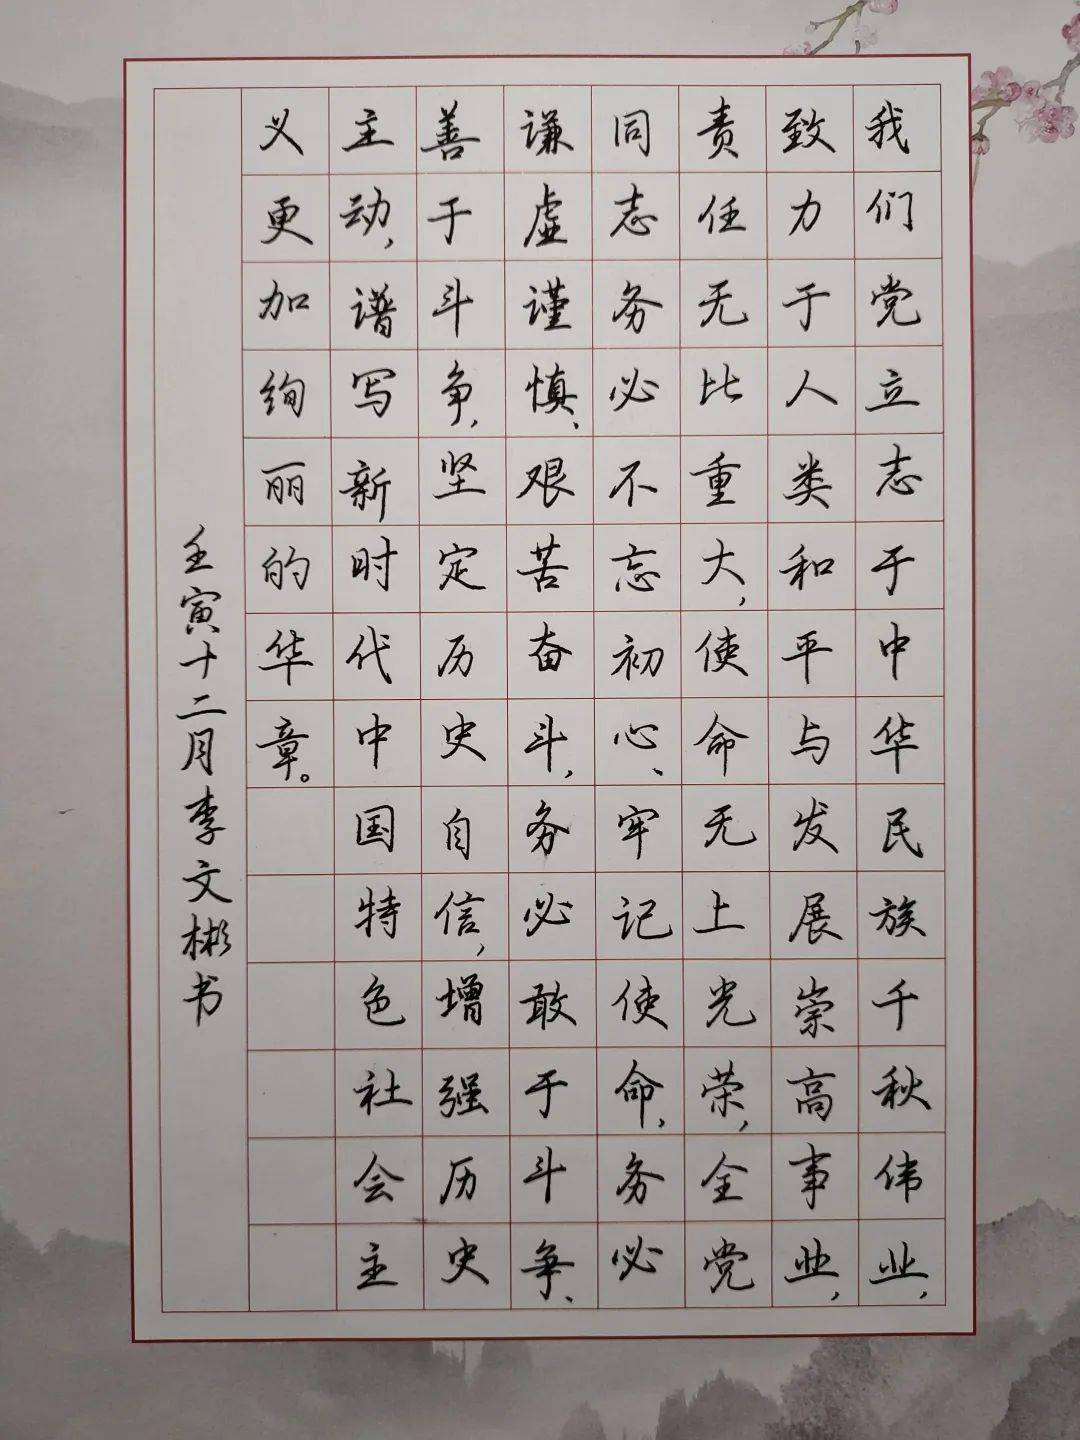 我们党立志于中华民族千秋伟业，
致力于人类和平与发展崇高事业，
责任无比重大，使命无上光荣，全党
同志务必不忘初心、牢记使命，务必
谦虚谨慎、艰苦奋斗，务必敢于斗争、
善于斗争，坚定历史自信，增强历史
主动，谱写新时代中国特色社会主
义更加绚丽的华章。
壬寅十二月李文彬书